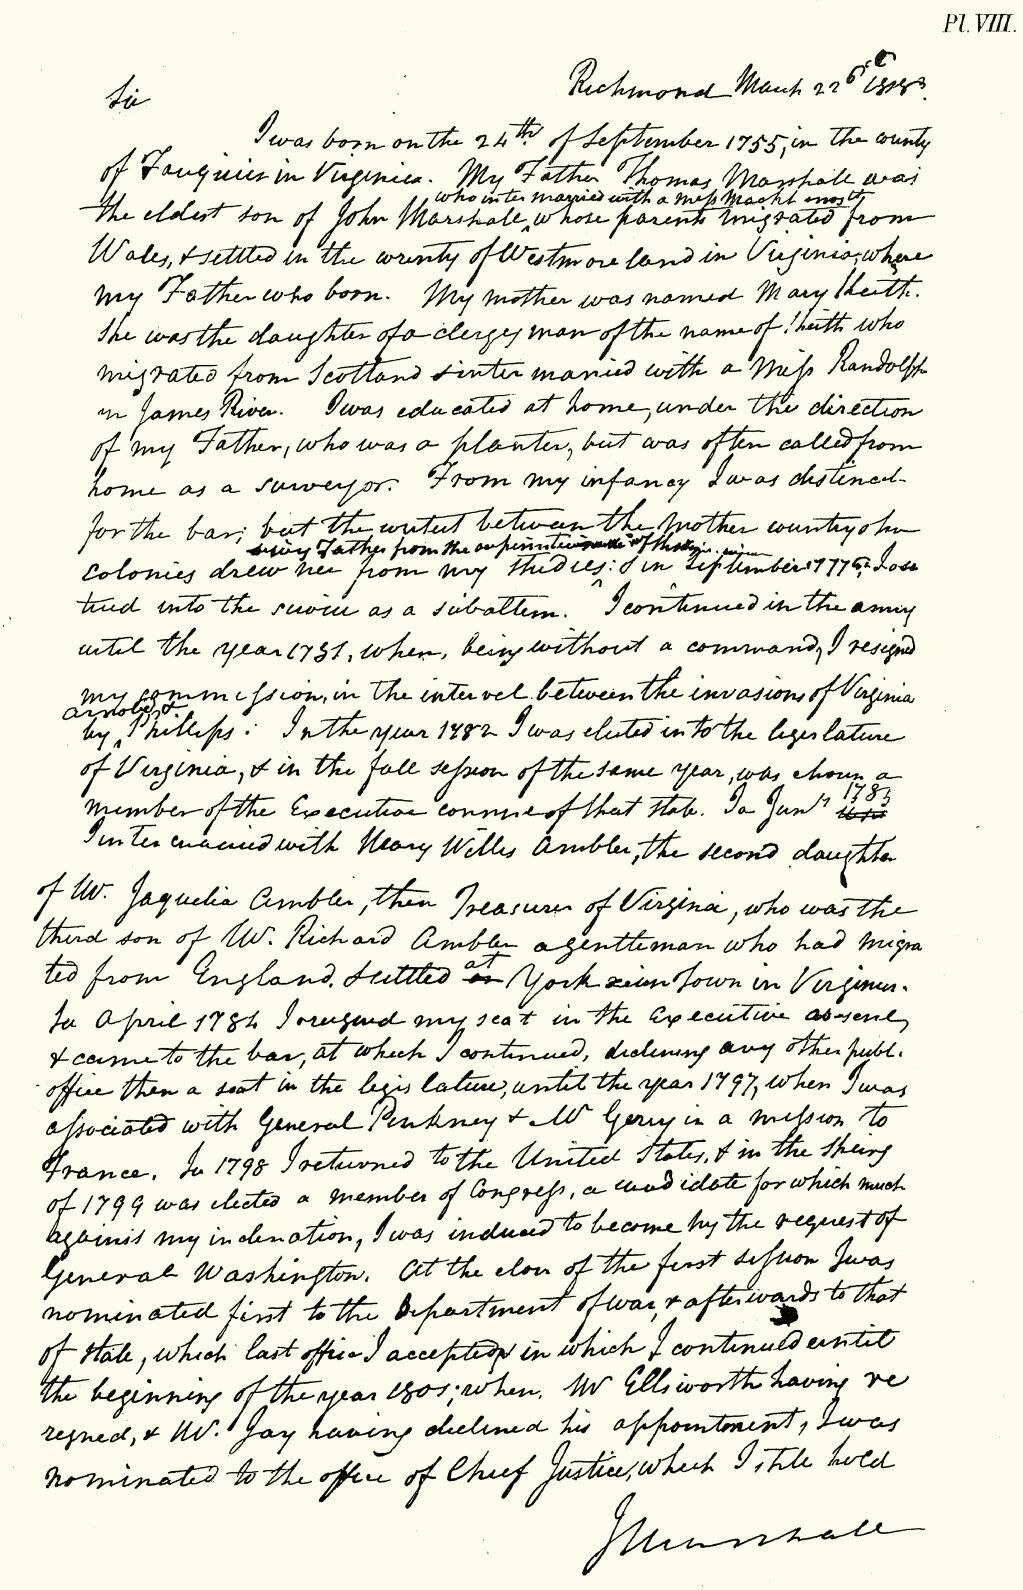 Pl. VIII.
Richmond March 22d 1818.
Sir
I was born on the 24th. of September 1755, in the county
of Fauquier in Virginia. My Father Thomas Marshall was
who intermarried with a Miss Markham
the eldest son of John Marshall, whose parents migrated from
Wales, & settled in the county of Westmoreland in Virginia, where
my Father who born. My mother was named Mary Keith.
She was the daughter of a clergyman of the name of Keith who
migrated from Scotland & intermarried with a Miss Randolph
on James River. I was educated at home, under the direction
of my Father, who was a planter, but was often called from
home as a surveyor. From my infancy I was destined
for the bar; but the contest between the mother country & her
my Father from the superintendence of
colonies drew me from my studies: & in September 1775, I
tered into the service as a subaltern. I continued in the army
until the year 1781, when, being without a command, I resigned
my commission, in the interval between the invasions of Virginia
Arnold &
by Phillips. In the year 1782 I was elected into the legislature
of Virginia, & in the fall session of the same year, was chosen a
member of the Executive council of that state. In Jany. 1783
I intermarried with Mary Willis Ambler, the second daughter
of Mr. Jaquelin Ambler, then Treasurer of Virginia, who was the
third son of Mr. Richard Ambler a gentleman who had migra
ted from England, & settled at York Town in Virginia.
In April 1784 I resigned my seat in the Executive council,
& came to the bar, at which I continued, declining any other publ.
office then a seat in the legislature, until the year 1797, when I was
associated with General Pinkney & Mr Gerry in a mission to
France. In 1798 I returned to the United States, & in the spring
of 1799 was elected a member of Congress, a candidate for which much
against my inclination, I was induced to become by the request of
General Washington. At the close of the first session I was
nominated first to the Department of war, & afterwards to that
of state, which last office I accepted, & in which I continued until
the beginning of the year 1801; when, Mr Ellsworth having re
signed, & Mr. Jay having declined his appointment, I was
nominated to the office of Chief Justice, which I still hold
J Marshall